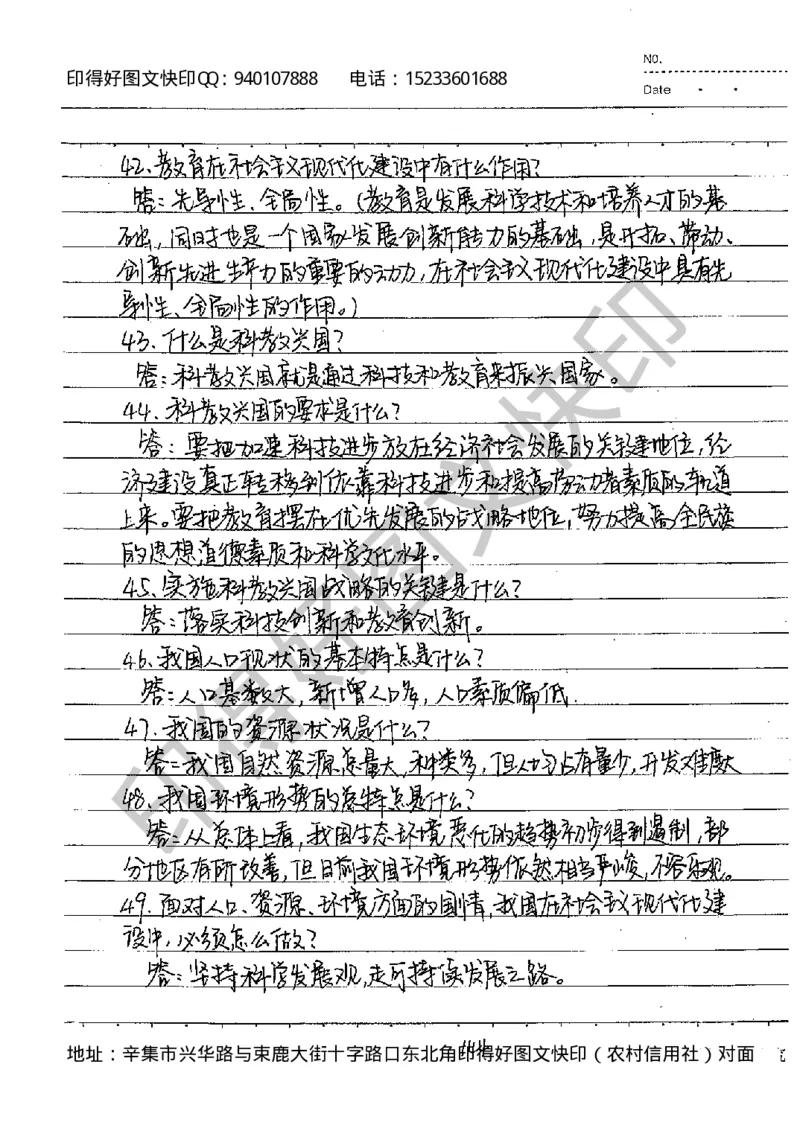 No.
印得好图文快印QQ：940107888 电话：15233601688
Date
42、教育在社会主义现代化建设中有什么作用？
答：先导性、全局性。（教育是发展科学技术和培养人才的基
础，同时也是一个国家发展创新能力的基础，是开拓、带动、
创新先进生产力的重要的动力，在社会主义现代化建设中具有先
导性、全局性的作用。）
43、什么是科教兴国？
答：科教兴国就是通过科技和教育来振兴国家。
44、科教兴国的要求是什么？
答：要把加速科技进步放在经济社会发展的关键地位，经
济建设真正转移到依靠科技进步和提高劳动者素质的轨道
上来。要把教育摆在优先发展的战略地位，努力提高全民族
的思想道德素质和科学文化水平。
45、实施科教兴国战略的关键是什么？
答：落实科技创新和教育创新。
46、我国人口现状的基本特点是什么？
答：人口基数大，新增人口多，人口素质偏低.
47、我国的资源状况是什么？
答：我国自然资源总量大，种类多，但人均占有量少，开发难度大
48、我国环境形势的总特点是什么？
答：从总体上看，我国生态环境恶化的趋势初步得到遏制，部
分地区有所改善，但目前我国环境形势依然相当严峻，不容乐观。
49、面对人口、资源、环境方面的国情，我国在社会主义现代化建
设中，必须怎么做？
答：坚持科学发展观，走可持续发展之路。
地址：辛集市兴华路与束鹿大街十字路口东北角印得好图文快印（农村信用社）对面
印得好图文快印